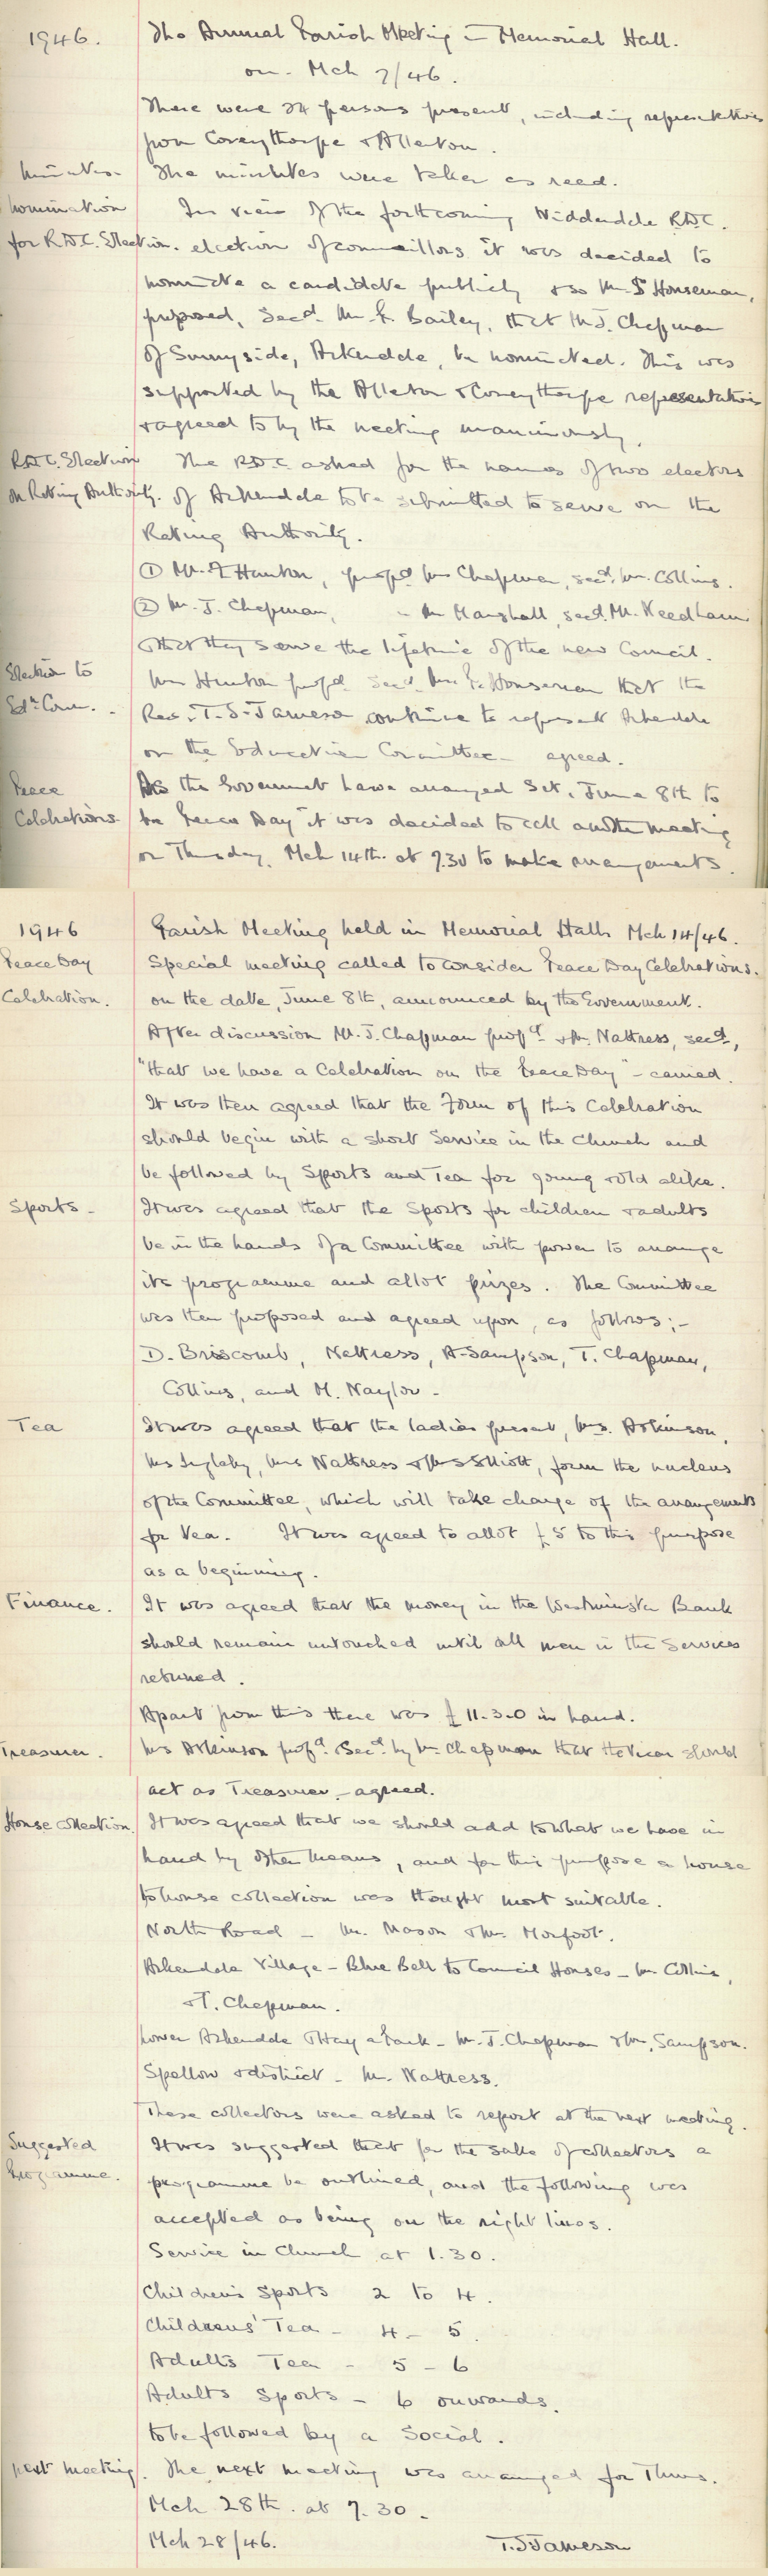 1946. The Annual Parish Meeting in Memorial Hall.
on. Mch 7/46.
There were 24 persons present, including representatives
from Coneythorpe & Allerton.
Minutes. The minutes were taken as read.
Nomination In view of the forthcoming Nidderdale R.D.C.
for R.D.C. Election. election of councillors it was decided to
nominate a candidate publicly & so Mr. Houseman,
proposed, Secd. Mr. F. Bailey, that Mr J. Chapman
of Sunnyside, Arkendale, be nominated. This was
supported by the Allerton & Coneythorpe representatives
& agreed to by the meeting unanimously.
R.D.C. Election The R.D.C. asked for the names of two electors
on Rating Authority. of Arkendale to be submitted to serve on the
Rating Authority.
① Mr. F Hunton, propd Mr Chapman, secd. Mr. Collins.
② Mr. J. Chapman, " Mr Marshall, secd. Mr. Needham
& that they serve the lifetime of the new Council.
Election to Mr Hunton propd secd. Mr. F. Houseman that the
Edn Com. Rev. T. S. Jameson continue to represent Arkendale
on the Education Committee - agreed.
Peace As the Government have arranged Sat. June 8th to
Celebrations be "Peace Day" it was decided to call another meeting
on Thursday, Mch 14th. at 7.30 to make arrangements.
1946 Parish Meeting held in Memorial Hall. Mch 14/46.
Peace Day Special meeting called to consider Peace Day Celebrations.
Celebration. on the date, June 8th, announced by the Government.
After discussion Mr. J. Chapman propd & Mr. Nattress, secd,
"that we have a Celebration on the Peace Day" - carried.
It was then agreed that the Form of this Celebration
should begin with a short Service in the Church and
be followed by Sports and Tea for young & old alike.
Sports - It was agreed that the Sports for children & adults
be in the hands of a Committee with power to arrange
its programme and allot prizes. The Committee
was then proposed and agreed upon, as follows:-
D. Briscomb, Nattress, A. Sampson, T. Chapman,
Collins, and M. Naylor -
Tea It was agreed that the ladies present, Mrs. Atkinson,
Mrs Ingleby, Mrs Nattress & Mrs Elliott, form the nucleus
of the Committee, which will take charge of the arrangements
for Tea. It was agreed to allot £5 to this purpose
as a beginning.
Finance. It was agreed that the money in the Westminster Bank
should remain untouched until all men in the Services
returned.
Apart from this there was £11.3.0 in hand.
Treasurer. Mrs Atkinson propd. & Secd by Mr Chapman that the Vicar should
act as Treasurer - agreed.
House collection. It was agreed that we should add to what we have in
hand by other means, and for this purpose a house
to house collection was thought most suitable.
North Road - Mr. Mason & Mr. Morfoot.
Arkendale Village - Blue Bell to Council Houses - Mr Collins,
& T. Chapman.
Lower Arkendale & Hay a Park - Mr. J. Chapman & Mr. Sampson.
Spellow & district - Mr. Nattress.
These collectors were asked to report at the next meeting.
Suggested It was suggested that for the sake of collectors a
Programme. programme be outlined, and the following was
accepted as being on the right lines.
Service in Church at 1.30.
Children's Sports 2 to 4.
Childrens' Tea - 4 - 5.
Adults Tea - 5 - 6
Adults Sports - 6 onwards.
to be followed by a Social.
next meeting. The next meeting was arranged for Thurs.
Mch 28th. at 7.30.
Mch 28/46. T. S Jameson